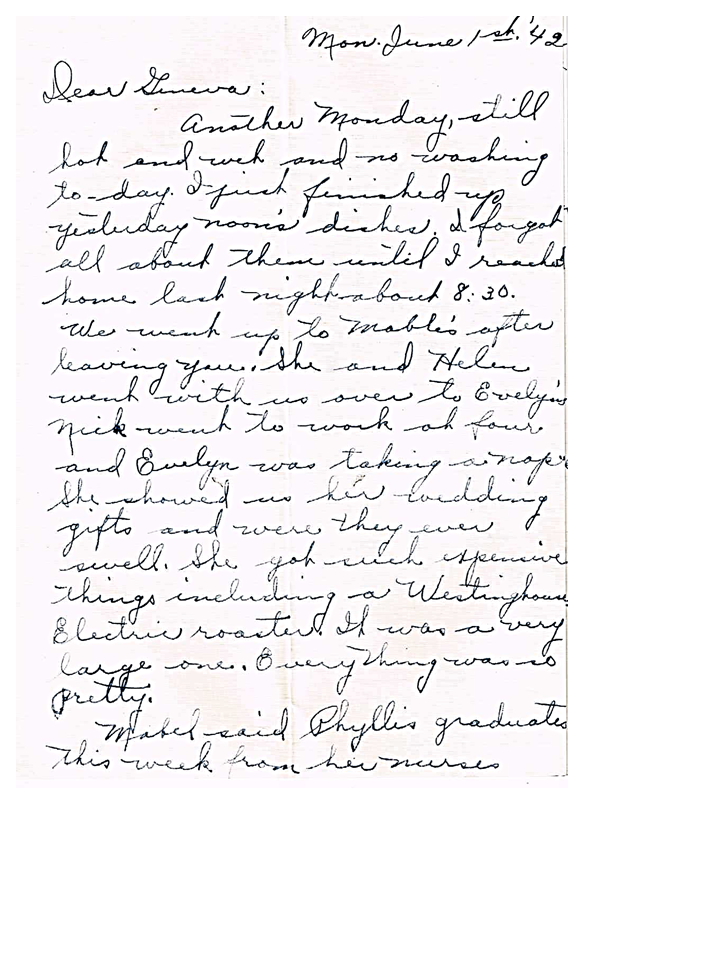 Mon. June 1st. '42
Dear Geneva:
Another Monday, still
hot and wet and no washing
to-day. I just finished up
yesterday noon's dishes. I forgot
all about them until I reached
home last night about 8:30.
We went up to Mable's after
leaving you. She and Helen
went with us over to Evelyn's
Nick went to work at four
and Evelyn was taking a nap.
She showed us her wedding
gifts and were they ever
swell. She got such expensive
things including a Westinghouse
Electric roaster. It was a very
large one. Everything was so
pretty.
Mabel said Phyllis graduates
this week from her nurses